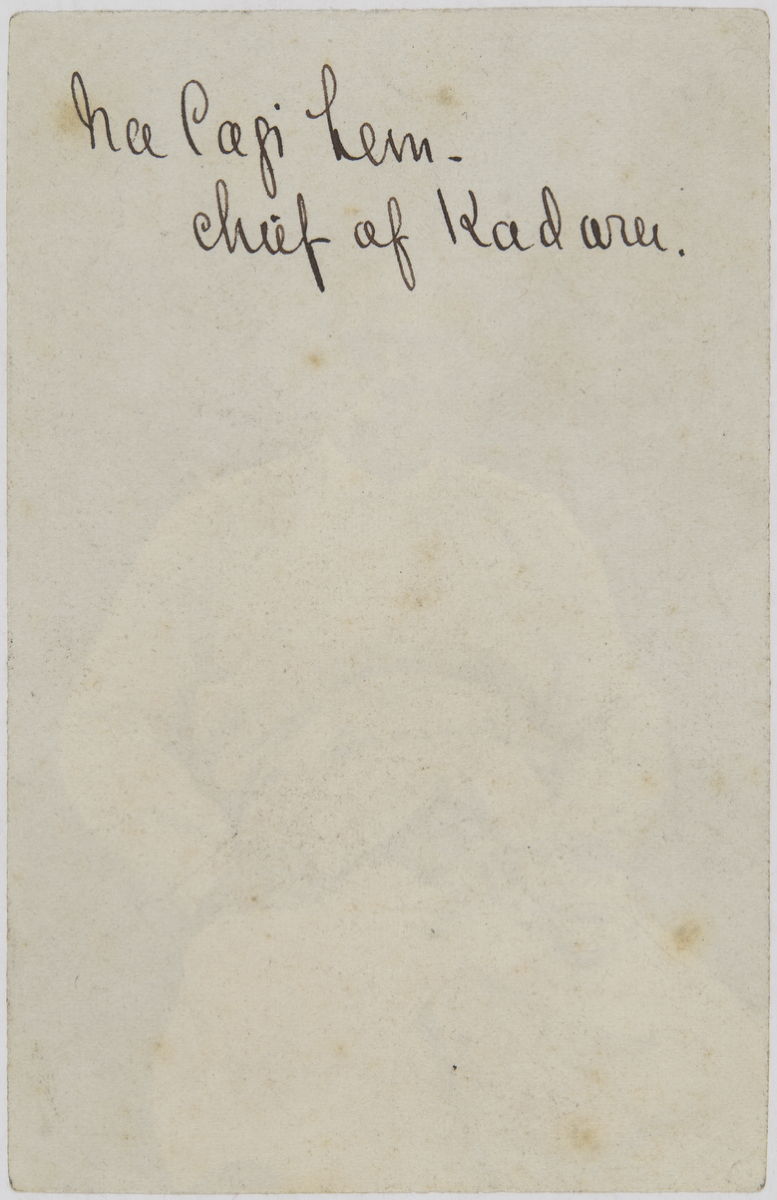 Na Cagi Levu -
chief of Kadavu.